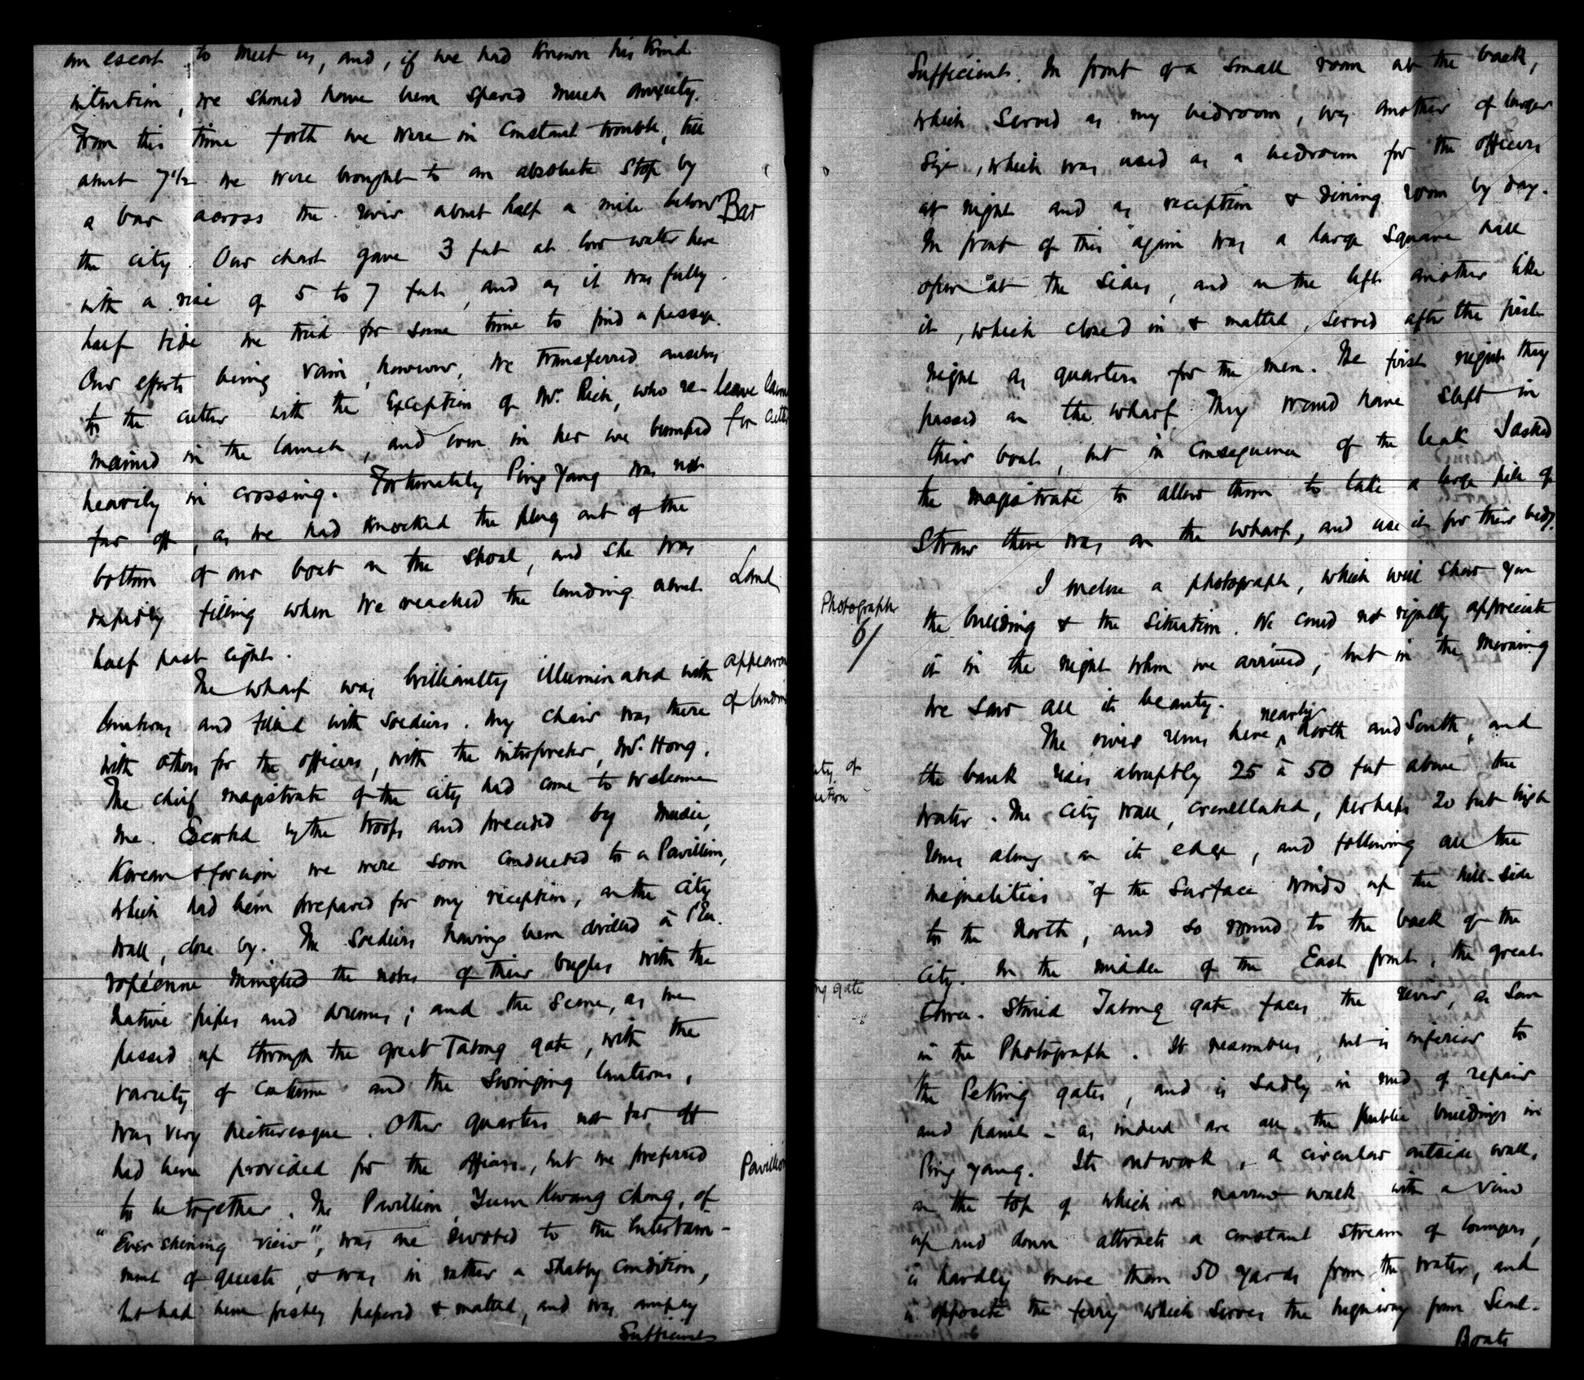 an escort to meet us, and, if we had known his kind
intention, we should have been spared much anxiety.
From this time forth we were in constant trouble, till
about 7 1/2 we were brought to an absolute stop by
a bar across the river about half a mile below
Bar
the city. Our chart gave 3 feet at low water here
with a rise of 5 to 7 feet, and as it was fully
half tide we tried for some time to find a passage.
Our efforts being vain, however, we transferred ourselves
to the cutter with the exception of Mr. Rich, who re-
leave
mained in the launch, and even in her we bumped
for
heavily in crossing. Fortunately Ping Yang was not
far off, as we had knocked the plug out of the
bottom of our boat on the shoal, and she was
rapidly filling when we reached the landing about
Land
half past eight.
The wharf was brilliantly illuminated with
lanterns and filled with soldiers. My chair was there
of
with others for the officers, with the interpreter, Mr. Hong.
The chief magistrate of the city had come to welcome
me. Escorted by the troops and preceded by music,
Korean & foreign we were soon conducted to a Pavillion,
which had been prepared for my reception, on the city
wall, close by. The soldiers having been drilled à l'Eu.
ropéenne mingled the notes of their bugles with the
native pipes and drums; and the scene, as we
passed up through the great Tatong gate, with the
variety of costume and the swinging lanterns,
was very picturesque. Other quarters not far off
had been provided for the officers, but we preferred
Pavillion
to be together. The Pavillion, Yuen Kwang Chong, of
"Ever shining view", was one devoted to the entertain-
ment of guests, & was in rather a shabby condition,
but had been freshly papered & matted, and was amply
Sufficient
Sufficient. In front of a small room at the back,
which served as my bedroom, was another of larger
size, which was used as a bedroom for the officers
at night and as reception & dining room by day.
In front of this again was a large square hall
open at the sides, and on the left another like
it, which closed in & matted, served after the first
night as quarters for the men. The first night they
passed on the wharf. They would have slept in
their boat, but in consequence of the leak I asked
the magistrate to allow them to take a large pile of
straw there was on the wharf, and use it for their beds.
I enclose a photograph, which will show you
Photograph
6/
the building & the situation. We could not rightly appreciate
it in the night when we arrived, but in the morning
we saw all its beauty.
The river runs here nearly North and South, and
of
the bank rises abruptly 25 à 50 feet above the
water. The city wall, crenellated, perhaps 20 feet high
runs along on its edge, and following all the
inequalities of the surface winds up the hill-side
to the North, and so round to the back of the
city. In the middle of the East front, the great
gate
three-storied Tatong gate faces the river, as seen
in the Photograph. It resembles, but is inferior to
the Peking gates, and is sadly in need of repair
and paint - as indeed are all the public buildings in
Ping yang. Its outwork, a circular outside wall,
on the top of which a narrow walk with a view
up and down attracts a constant stream of loungers,
is hardly more than 50 yards from the water, and
is opposite the ferry which serves the highway from Seoul.
Boats